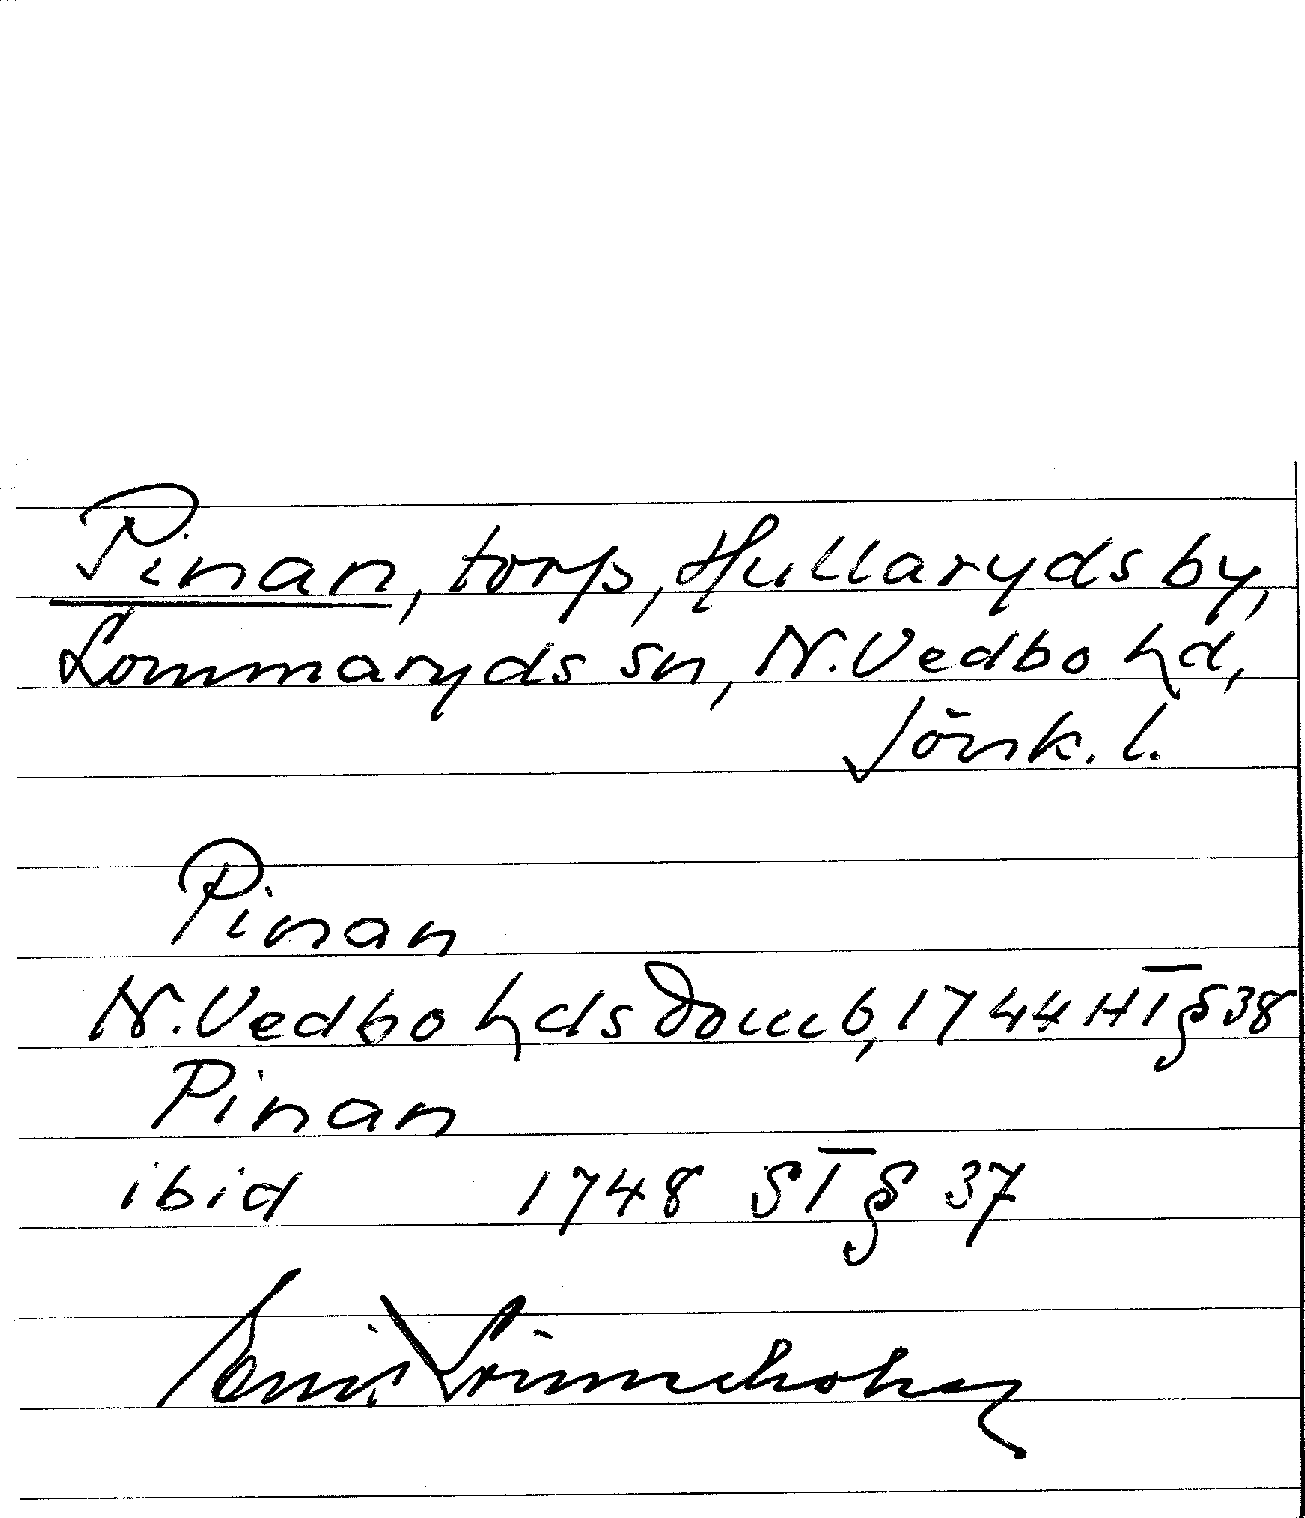 Pinan, torp, Hullaryds by,
Lommaryds sn, N. Vedbo hd,
Jönk. l.
Pinan
N. Vedbo hds domb, 1744 HT § 38
Pinan
ibid 1748 ST § 37